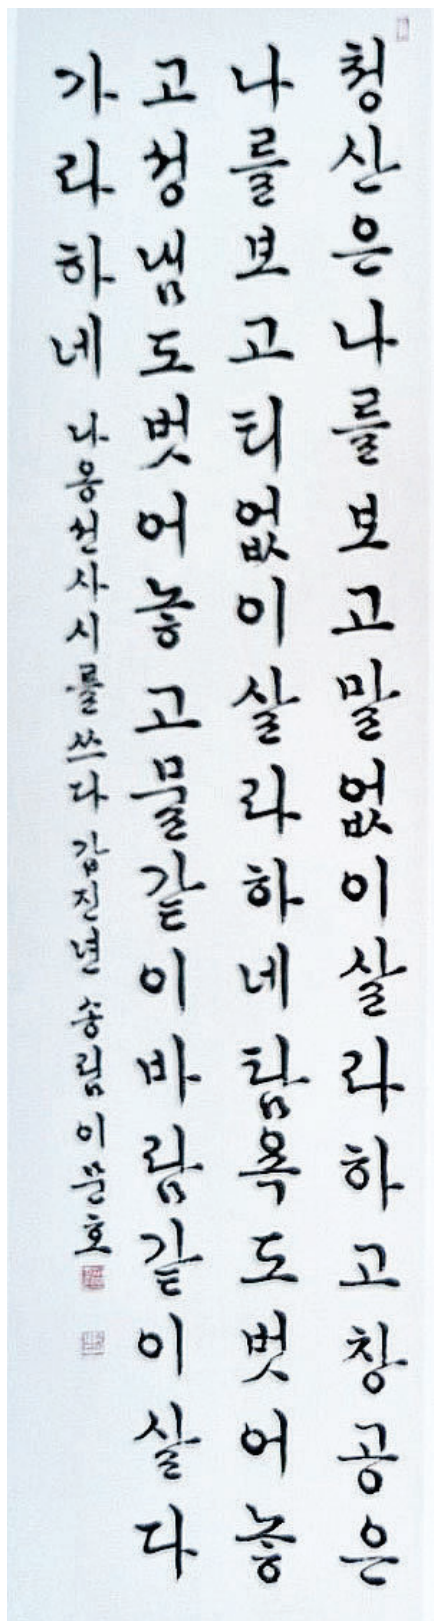 청산은나를보고말없이살라하고창공은
나를보고티없이살라하네탐욕도벗어놓
고성냄도벗어놓고물같이바람같이살다
가라하네 나옹선사시를쓰다 갑진년 송림 이문호